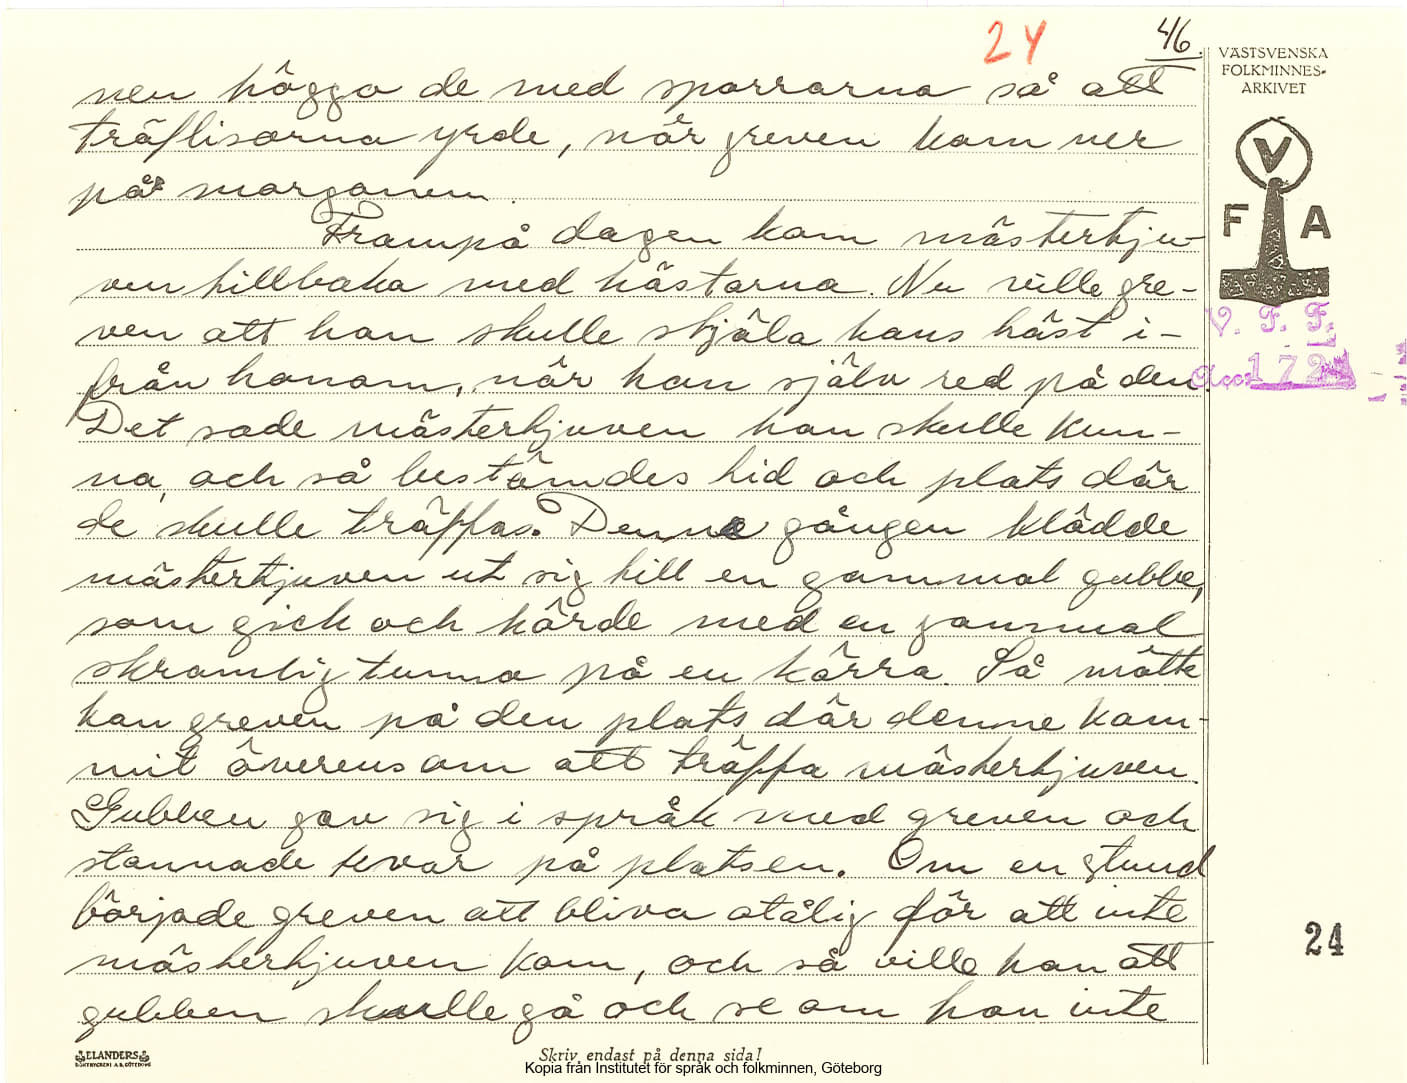 24
46.
VÄSTSVENSKA
FOLKMINNES-
ARKIVET
V
F A
V. F. F.
Acc. 172
nen höggo de med sparrarna så att
träflisorna yrde, når greven kom ner
på morgonen.
Frampå dagen kom mästertju-
ven tillbaka med hästarna. Nu ville gre-
ven att han skulle stjäla hans häst i-
från honom, når han själv red på den.
Det sade mästertjuven han skulle kun-
na, och så bestämdes tid och plats där
de skulle träffas. Denna gången klädde
mästertjuven ut sig till en gammal gubbe,
som gick och körde med en gammal
skramlig tunna på en kärra. Så mötte
han greven på den plats där denne kom-
mit överens om att träffa mästertjuven.
Gubben gav sig i språk med greven och
stannade kvar på platsen. Om en stund
började greven att bliva otålig för att inte
mästertjuven kom, och så ville han att
gubben skulle gå och se om han inte
24
ELANDERS
BOKTRYCKERI A.B. GÖTEBORG
Skriv endast på denna sida!
Kopia från Institutet för språk och folkminnen, Göteborg